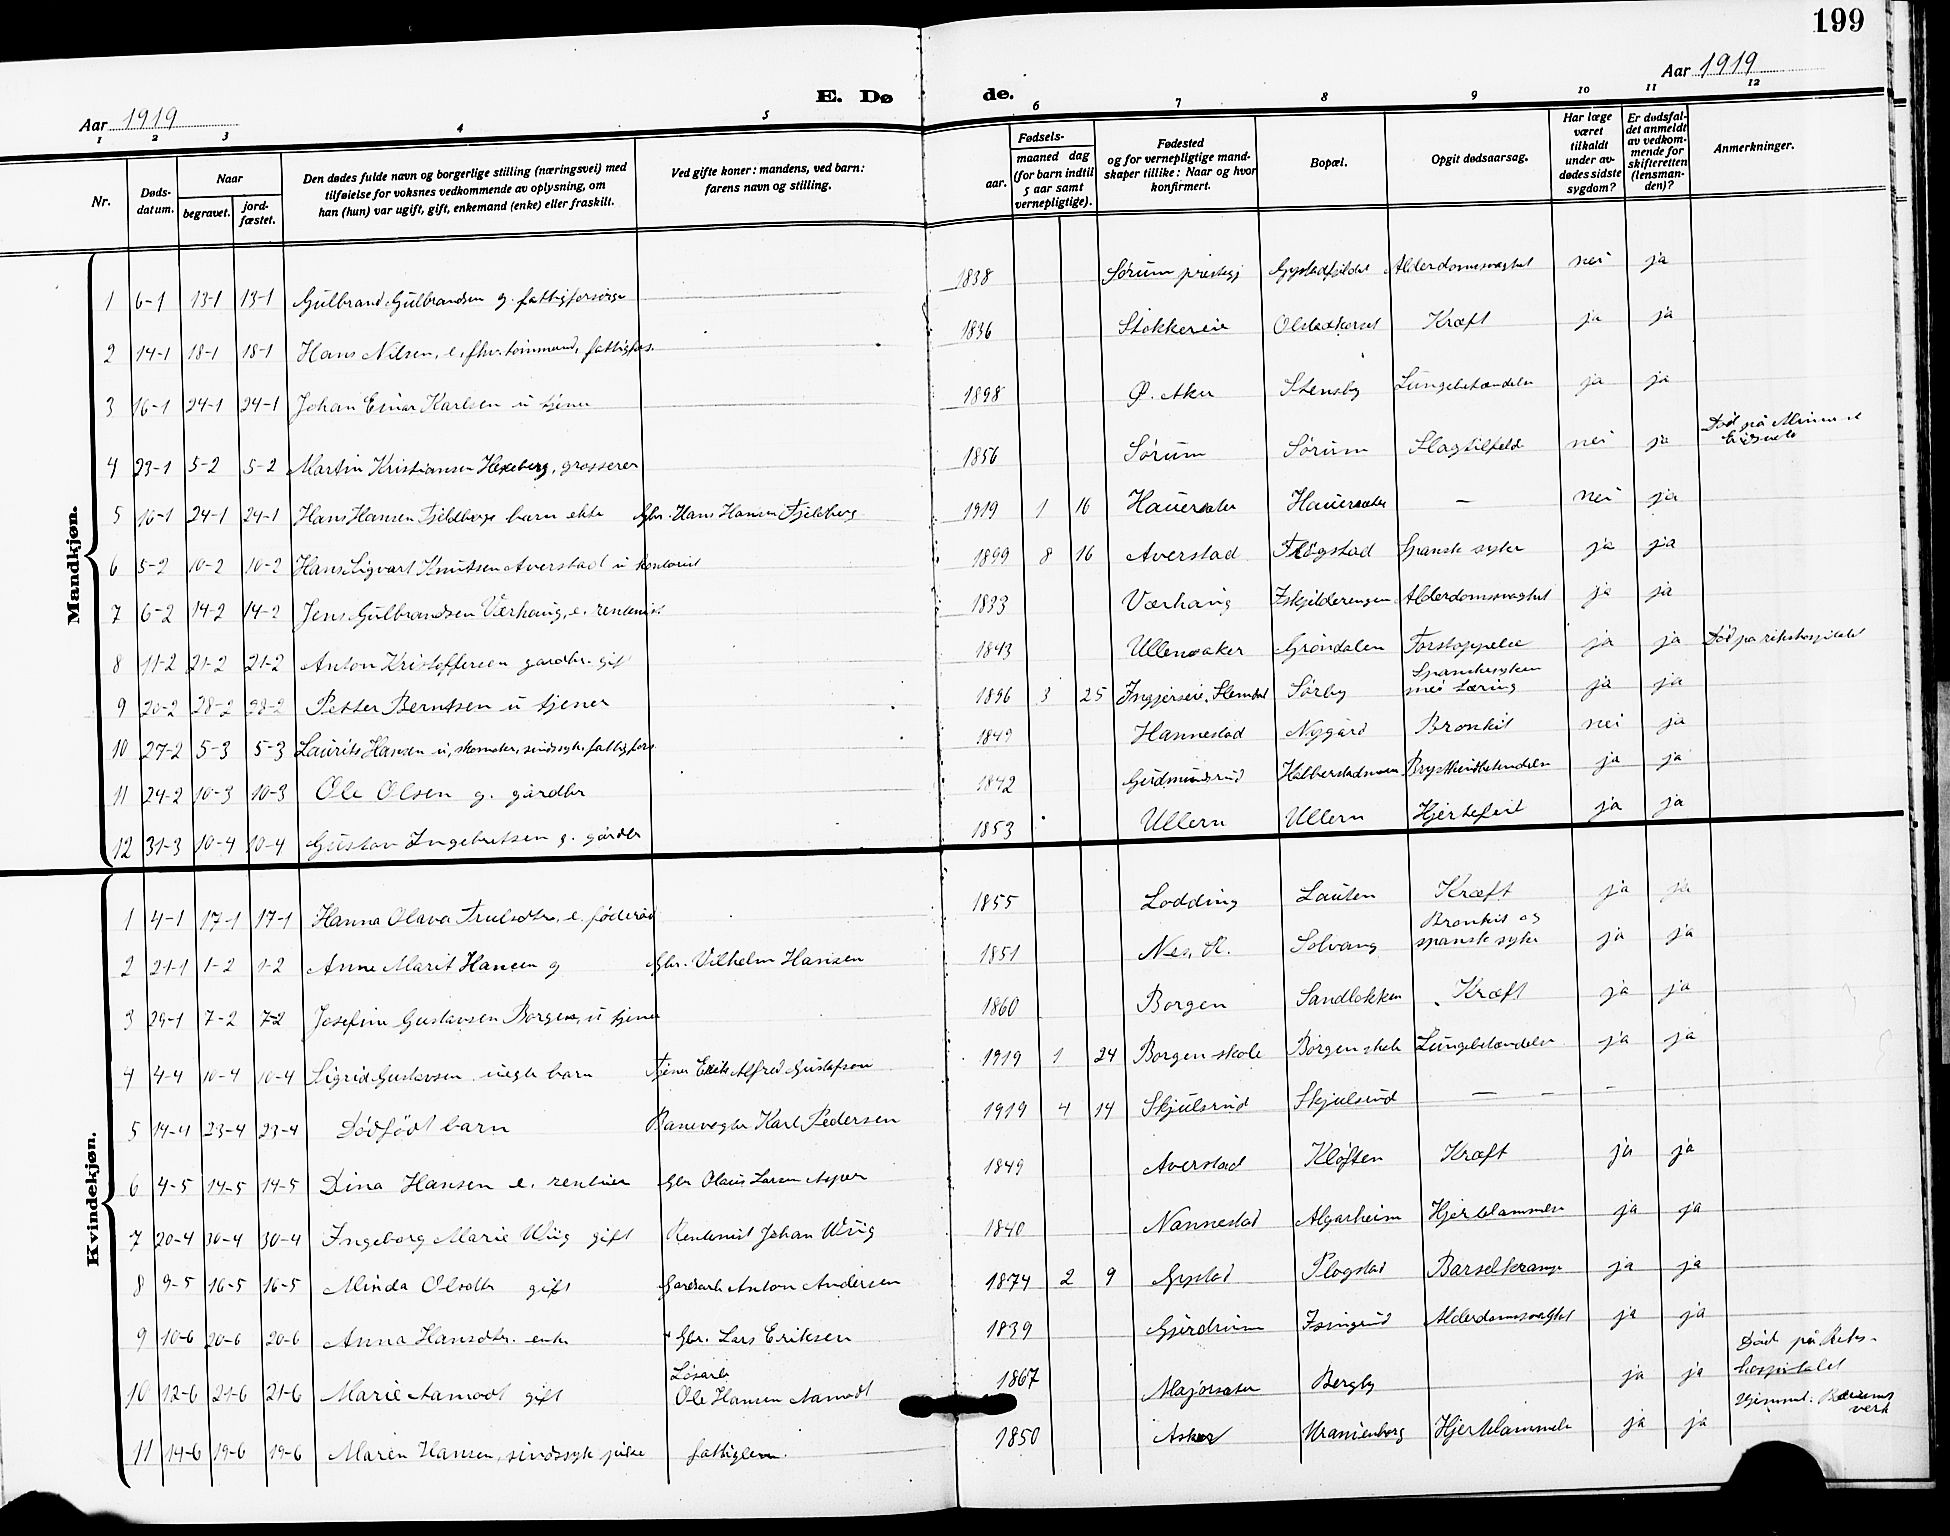 199
Aar 1919
Aar 1919
E. Døde.
1 2 3 4 5 6 7 8 9 10 11 12
Nr.
Døds-
datum.
Naar
begravet.
jord-
fæstet.
Den dødes fulde navn og borgerlige stilling (næringsvei) med
tilføielse for voksnes vedkommende av oplysning, om
han (hun) var ugift, gift, enkemand (enke) eller fraskilt.
Ved gifte koner: mandens, ved barn:
farens navn og stilling.
Fødsels-
aar.
maaned dag
(for barn indtil
5 aar samt
vernepligtige).
Fødested
og for vernepligtige mand-
skaper tillike: Naar og hvor
konfirmert.
Bopæl.
Opgit dødsaarsag.
Har læge
været
tilkaldt
under av-
dødes sidste
sygdom?
Er dødsfal-
det anmeldt
av vedkom-
mende for
skifteretten
(lensman-
den)?
Anmerkninger.
Mandkjøn.
1 6-1 13-1 13-1 Gulbrand Gulbrandsen g. fattigforsørge 1838 Sørum prestegj Alderdomssvaghet nei ja
2 14-1 18-1 18-1 Hans Nilsen, e. fhv. tømmerm., fattigfors. 1836 Stokkereie Olstadkorset Kræft ja ja
3 16-1 24-1 24-1 Johan Einar Karlsen u tjener 1898 Ø. Aker Stensby Lungebetændelse ja ja
4 23-1 5-2 5-2 Martin Kristiansen Hexeberg, grosserer 1856 Sørum Sørum Slagtilfelde nei ja Død på Minne st Eidsvold
5 16-1 24-1 24-1 Hans Hansen Fjeldberg barn ekte Gbr. Hans Hansen Fjeldberg 1919 1 16 Hauersæter Hauersæter — nei ja
6 5-2 10-2 10-2 Hans Sigvart Knutsen Averstad u kontorist 1899 8 16 Averstad Flogstad Spansk syke ja ja
7 6-2 14-2 14-2 Jens Gulbrandsen Værhaug, e. rentenist 1833 Værhaug Alderdomssvaghet ja ja
8 11-2 21-2 21-2 Anton Kristoffersen gardbr. gift 1843 Ullensaker Grøndalen Forstoppelse ja ja Død på rikshospitalet
9 20-2 28-2 28-2 Petter Berntsen u tjener 1896 3 25 Sørby Spanskesyken ja ja
10 27-2 5-3 5-3 Laurits Hansen u, skomaker, sindssyk, fattigfors. 1849 Hannestad Nygård Bronkit nei ja
11 24-2 10-3 10-3 Ole Olsen g. gårdbr 1842 Gudmundsrud Brysthindebetændelse ja ja
12 31-3 10-4 10-4 Gustav Ingebretsen g. gårdbr 1853 Ullern Ullern Hjertefeil ja ja
Kvindekjøn.
1 4-1 17-1 17-1 Hanna Olava Trulsdtr, e. føderåd 1855 Lodding Lauten Kræft ja ja
2 21-1 1-2 1-2 Anne Marit Hansen g Gbr. Vilhelm Hansen 1851 Nes, R. Solvang Bronkit og spansk syke ja ja
3 29-1 7-2 7-2 Josefine Gustavsen Borgen, u tjener 1860 Borgen Sandløkken Kræft ja ja
4 4-4 10-4 10-4 Sigrid Gustavsen uegte barn Tjener Alfred Gustafson 1919 1 24 Borgen skole Borgen skole Lungebetændelse ja ja
5 14-4 23-4 23-4 Dødfødt barn Banevogter Karl Pedersen 1919 4 14 Skjulsrud Skjulsrud — — —
6 4-5 14-5 14-5 Dina Hansen e. rentier Gbr Olaus Larsen Asper 1849 Averstad Kløften Kræft ja ja
7 20-4 30-4 30-4 Ingeborg Marie Wiig gift Rentenist Johan Wiig 1840 Nannestad Algarheim Hjertelammelse ja ja
8 9-5 16-5 16-5 Minda Olsdtr gift Gardsarb Anton Andersen 1874 2 9 Gystad Flogstad Barselkrampe ja ja
9 10-6 20-6 20-6 Anna Hansdtr. enke Gbr. Lars Eriksen 1839 Gjerdrum Isingrud Alderdomssvaghet ja ja
10 12-6 21-6 21-6 Marie Aamodt gift Løsarb Ole Hansen Aamodt 1867 Majorsæter Bergby ja ja Død på Riks-
hospitalet
11 14-6 19-6 19-6 Maren Hansen, sindssyk pike fattiglem. 1850 Asker Uranienborg Hjertelammelse ja ja Hjemmeh. Bærums
verk